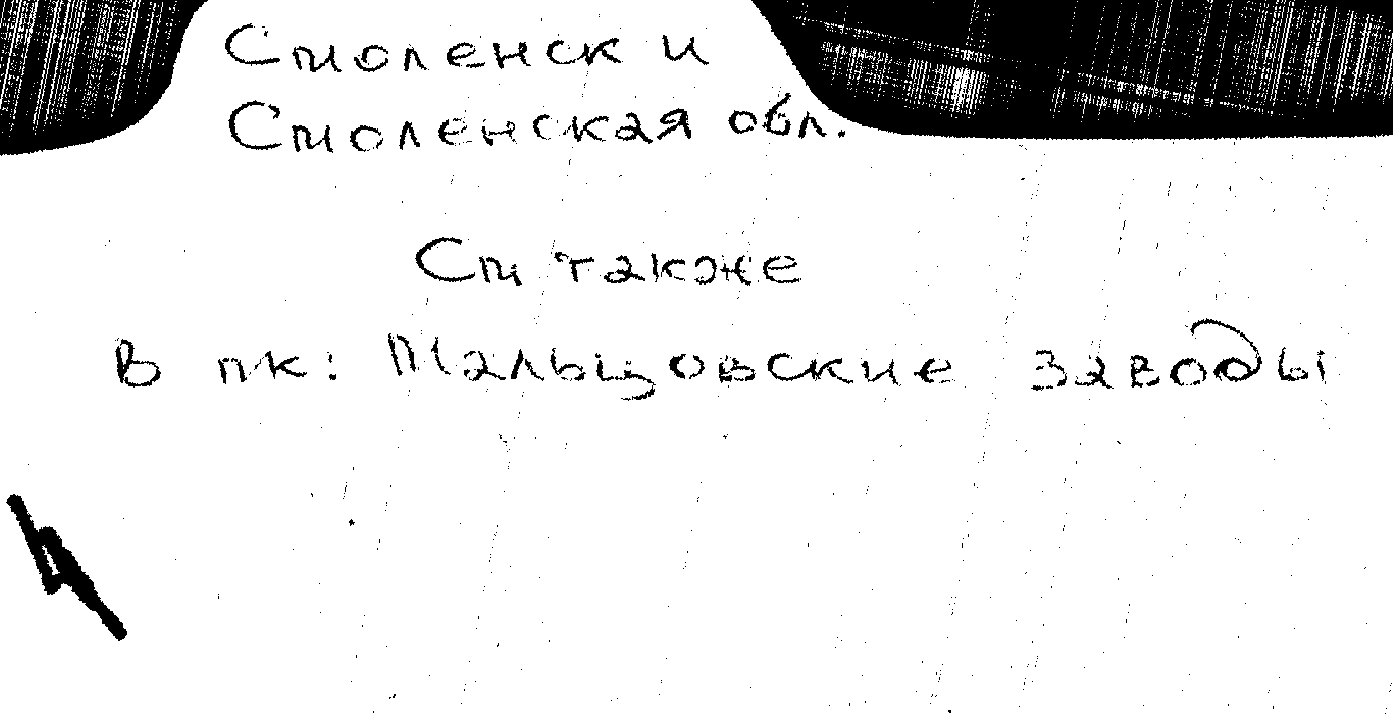 Смоленск и
Смоленская обл.
См также
в пк: Мальцовские заводы